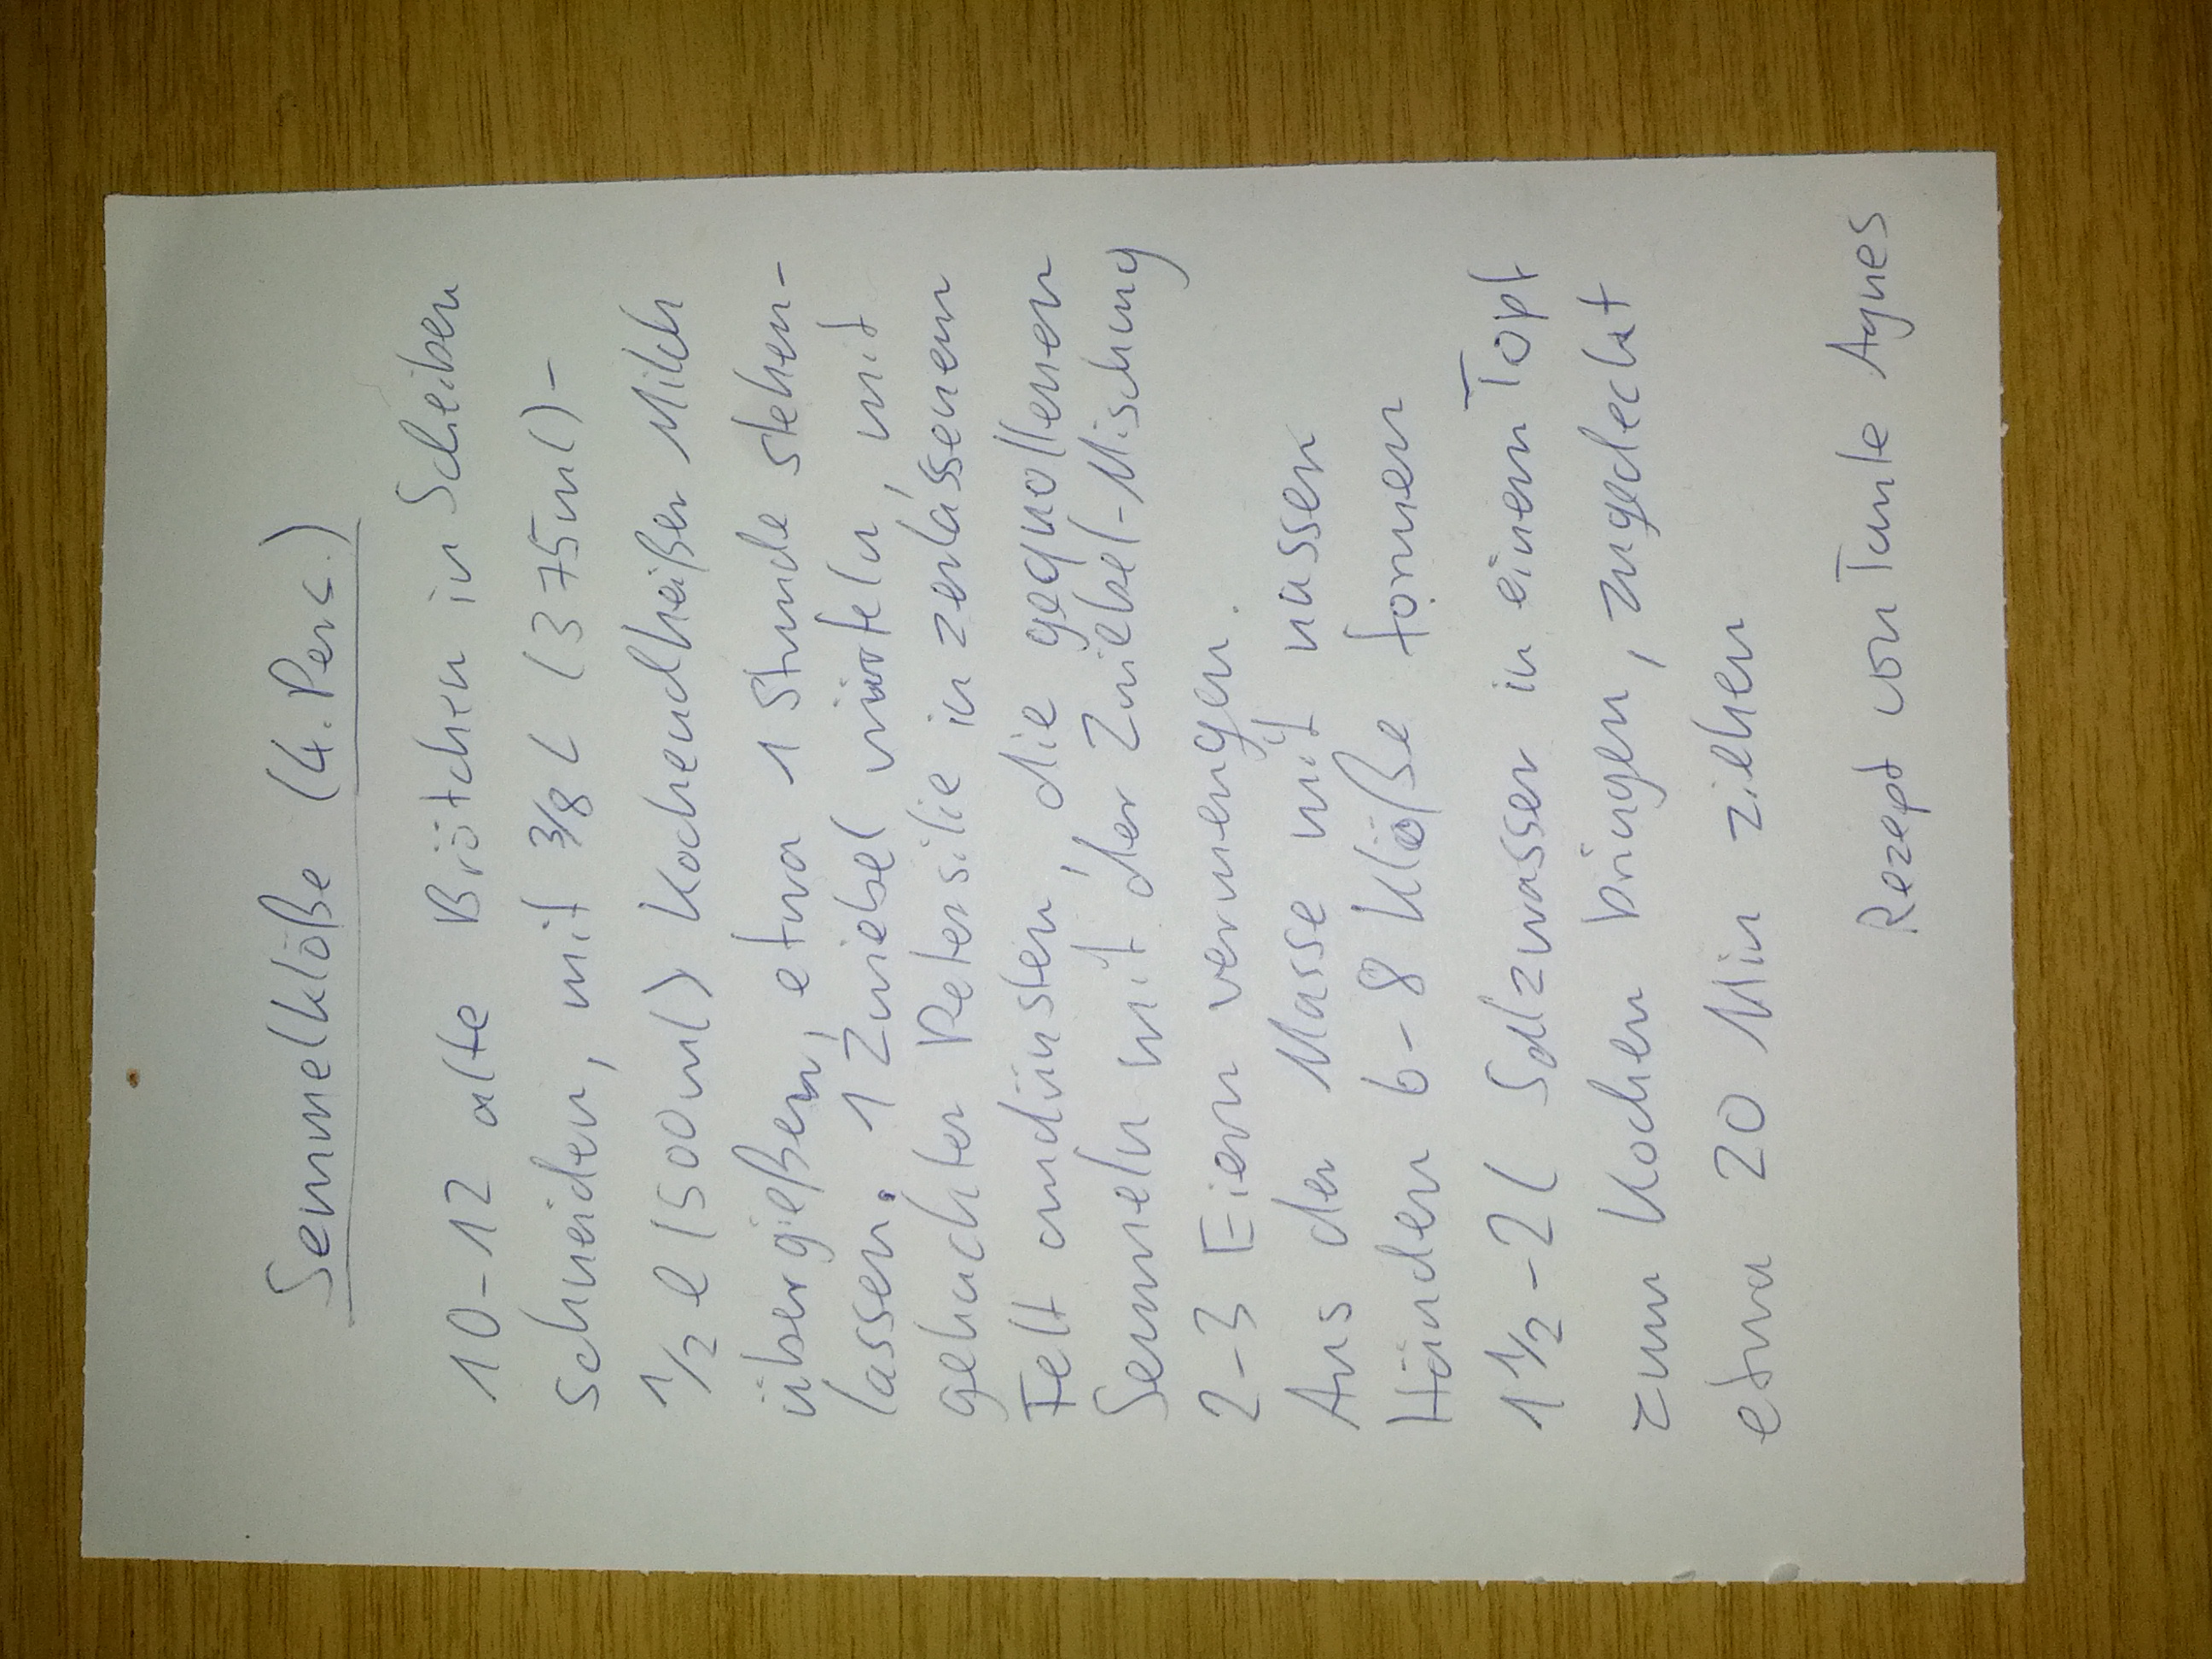 Semmelklöße (4. Pers.)
10-12 alte Brötchen in Scheiben
schneiden, mit 3/8 l (375ml)-
1/2 l (500ml) kochendheißer Milch
übergießen, etwa 1 Stunde stehen-
lassen. 1 Zwiebel würfeln, mit
gehackter Petersilie in zerlassenem
Fett andünsten, die gequollenen
Semmeln mit der Zwiebel-Mischung
2-3 Eiern vermengen.
Aus der Masse mit nassen
Händen 6-8 Klöße formen
1 1/2 - 2 l Salzwasser in einem Topf
zum Kochen bringen, zugedeckt
etwa 20 Min ziehen
Rezept von Tante Agnes